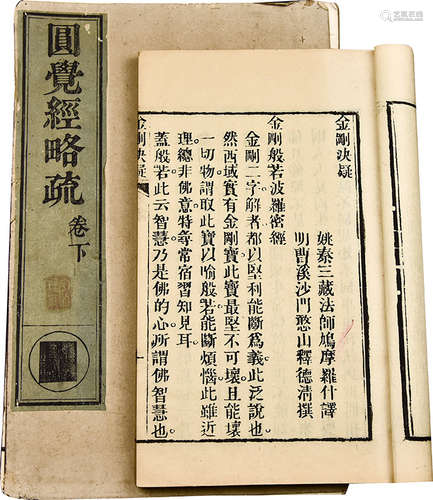 圓覺經略疏
卷下
金剛決疑
姚秦三藏法師鳩摩羅什譯
明曹溪沙門憨山釋德清撰
金剛般若波羅密經
金剛二字解者都以堅利能斷爲義此泛說也
然西域實有金剛寶此寶最堅不可壞且能壞
一切物謂取此寶以喻般若能斷煩惱此雖近
理總非佛意特尋常宿習知見耳
蓋般若此云智慧乃是佛的心所謂佛智慧也
金剛決疑